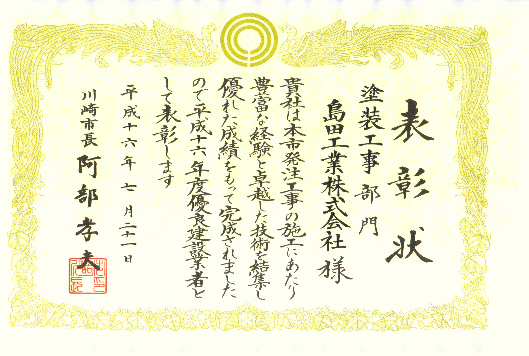 表彰状
塗装工事部門
島田工業株式会社様
貴社は本市発注工事の施工にあたり
豊富な経験と卓越した技術を結集し
優れた成績をもって完成されました
ので平成十六年度優良建設業者と
して表彰します
平成十六年七月二十一日
川崎市長 阿部孝夫